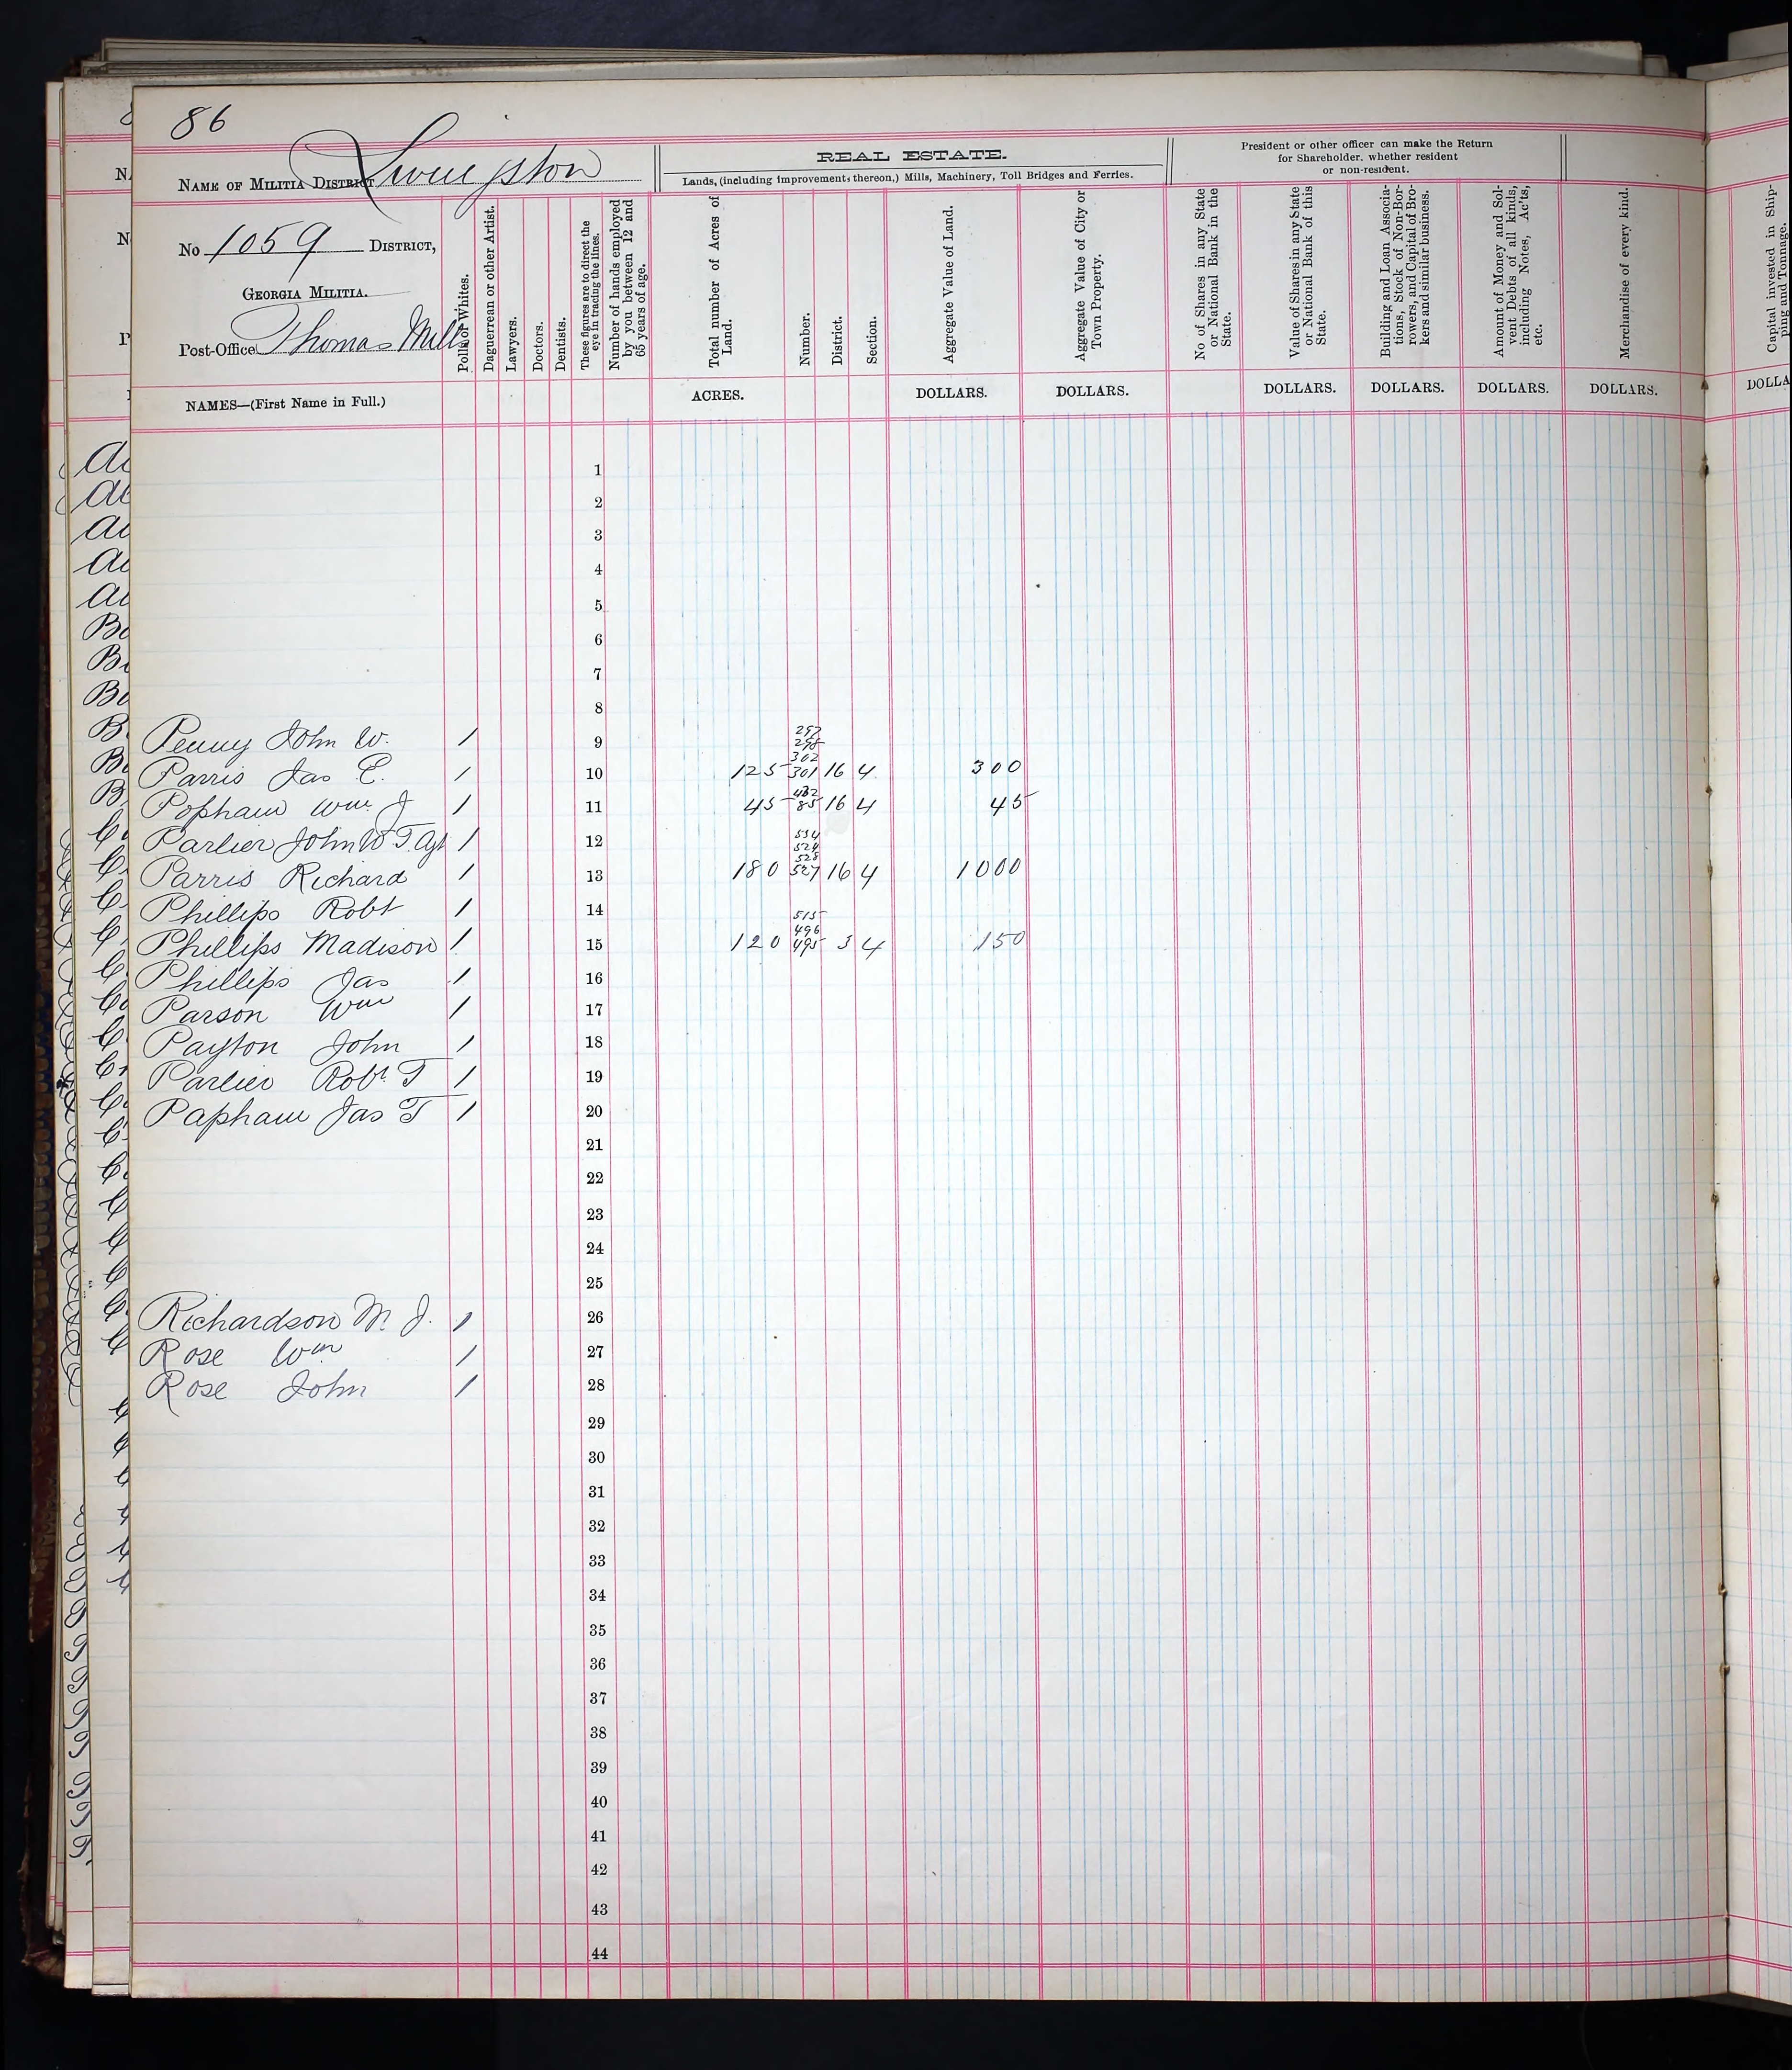 86
NAME OF MILITIA DISTRICT Livingston
No 1059 DISTRICT,
GEORGIA MILITIA.
Post-Office Thomas Mills
NAMES—(First Name in Full.)
Polls for Whites.
Daguerrean or other Artist.
Lawyers.
Doctors.
Dentists.
These figures are to direct the
eye in tracing the lines.
Number of hands employed
by you between 12 and
65 years of age.
REAL ESTATE.
Lands, (including improvements thereon,) Mills, Machinery, Toll Bridges and Ferries.
Total number of Acres of
Land.
ACRES.
Number.
District.
Section.
Aggregate Value of Land.
DOLLARS.
Aggregate Value of City or
Town Property.
DOLLARS.
President or other officer can make the Return
for Shareholder, whether resident
or non-resident.
No of Shares in any State
or National Bank in the
State.
Value of Shares in any State
or National Bank of this
State.
DOLLARS.
Building and Loan Associa-
tions, Stock of Non-Bor-
rowers, and Capital of Bro-
kers and similar business.
DOLLARS.
Amount of Money and Sol-
vent Debts of all kinds,
including Notes, Ac'ts,
etc.
DOLLARS.
Merchandise of every kind.
DOLLARS.
Capital invested in Ship-
ping and Tonnage.
DOLLA
1
2
3
4
5
6
7
8
297
298
Penny John W. 1 9
302
Parris Jas E. 1 10 125 301 16 4 300
432
Popham Wm J 1 11 45 85 16 4 45
534
Parlier John W T. Agt 1 12
524
528
Parris Richard 1 13 180 527 16 4 1000
Phillips Robt 1 14
515
496
Phillips Madison 1 15 120 495 3 4 150
Phillips Jas 1 16
Parson Wm 1 17
Payton John 1 18
Parlier Robt T 1 19
Papham Jas T 1 20
21
22
23
24
25
Richardson M J. 1 26
Rose Wm 1 27
Rose John 1 28
29
30
31
32
33
34
35
36
37
38
39
40
41
42
43
44